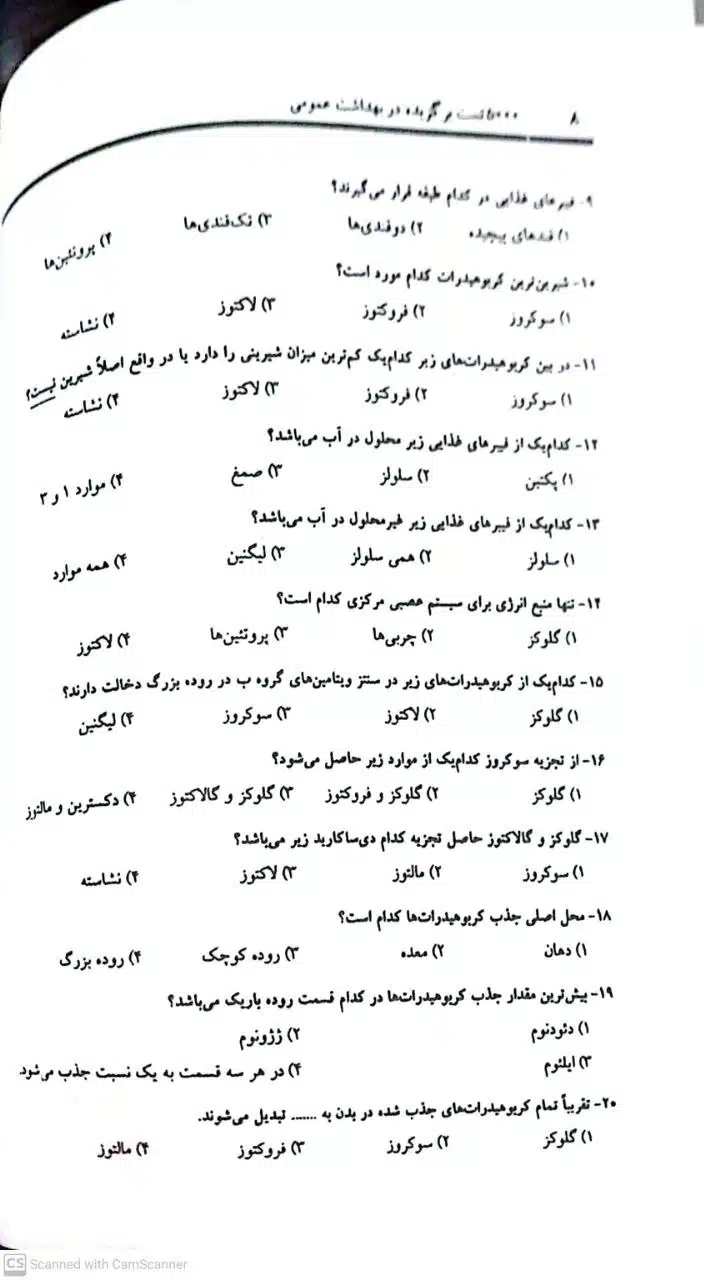 ۸ ۵۰۰۰ تست برگزیده در بهداشت عمومی
۹- فیبرهای غذایی در کدام طبقه قرار می‌گیرند؟
۱) قندهای پیچیده ۲) دوقندی‌ها ۳) تک‌قندی‌ها ۴) پروتئین‌ها
۱۰- شیرین‌ترین کربوهیدرات کدام مورد است؟
۱) سوکروز ۲) فروکتوز ۳) لاکتوز ۴) نشاسته
۱۱- در بین کربوهیدرات‌های زیر کدام‌یک کم‌ترین میزان شیرینی را دارد یا در واقع اصلاً شیرین نیست؟
۱) سوکروز ۲) فروکتوز ۳) لاکتوز ۴) نشاسته
۱۲- کدام‌یک از فیبرهای غذایی زیر محلول در آب می‌باشد؟
۱) پکتین ۲) سلولز ۳) صمغ ۴) موارد ۱ و ۳
۱۳- کدام‌یک از فیبرهای غذایی زیر غیرمحلول در آب می‌باشد؟
۱) سلولز ۲) همی سلولز ۳) لیگنین ۴) همه موارد
۱۴- تنها منبع انرژی برای سیستم عصبی مرکزی کدام است؟
۱) گلوکز ۲) چربی‌ها ۳) پروتئین‌ها ۴) لاکتوز
۱۵- کدام‌یک از کربوهیدرات‌های زیر در سنتز ویتامین‌های گروه ب در روده بزرگ دخالت دارند؟
۱) گلوکز ۲) لاکتوز ۳) سوکروز ۴) لیگنین
۱۶- از تجزیه سوکروز کدام‌یک از موارد زیر حاصل می‌شود؟
۱) گلوکز ۲) گلوکز و فروکتوز ۳) گلوکز و گالاکتوز ۴) دکسترین و مالتوز
۱۷- گلوکز و گالاکتوز حاصل تجزیه کدام دی‌ساکارید زیر می‌باشد؟
۱) سوکروز ۲) مالتوز ۳) لاکتوز ۴) نشاسته
۱۸- محل اصلی جذب کربوهیدرات‌ها کدام است؟
۱) دهان ۲) معده ۳) روده کوچک ۴) روده بزرگ
۱۹- بیش‌ترین مقدار جذب کربوهیدرات‌ها در کدام قسمت روده باریک می‌باشد؟
۱) دئودنوم ۲) ژژونوم
۳) ایلئوم ۴) در هر سه قسمت به یک نسبت جذب می‌شود.
۲۰- تقریباً تمام کربوهیدرات‌های جذب شده در بدن به ....... تبدیل می‌شوند.
۱) گلوکز ۲) سوکروز ۳) فروکتوز ۴) مالتوز
CS Scanned with CamScanner